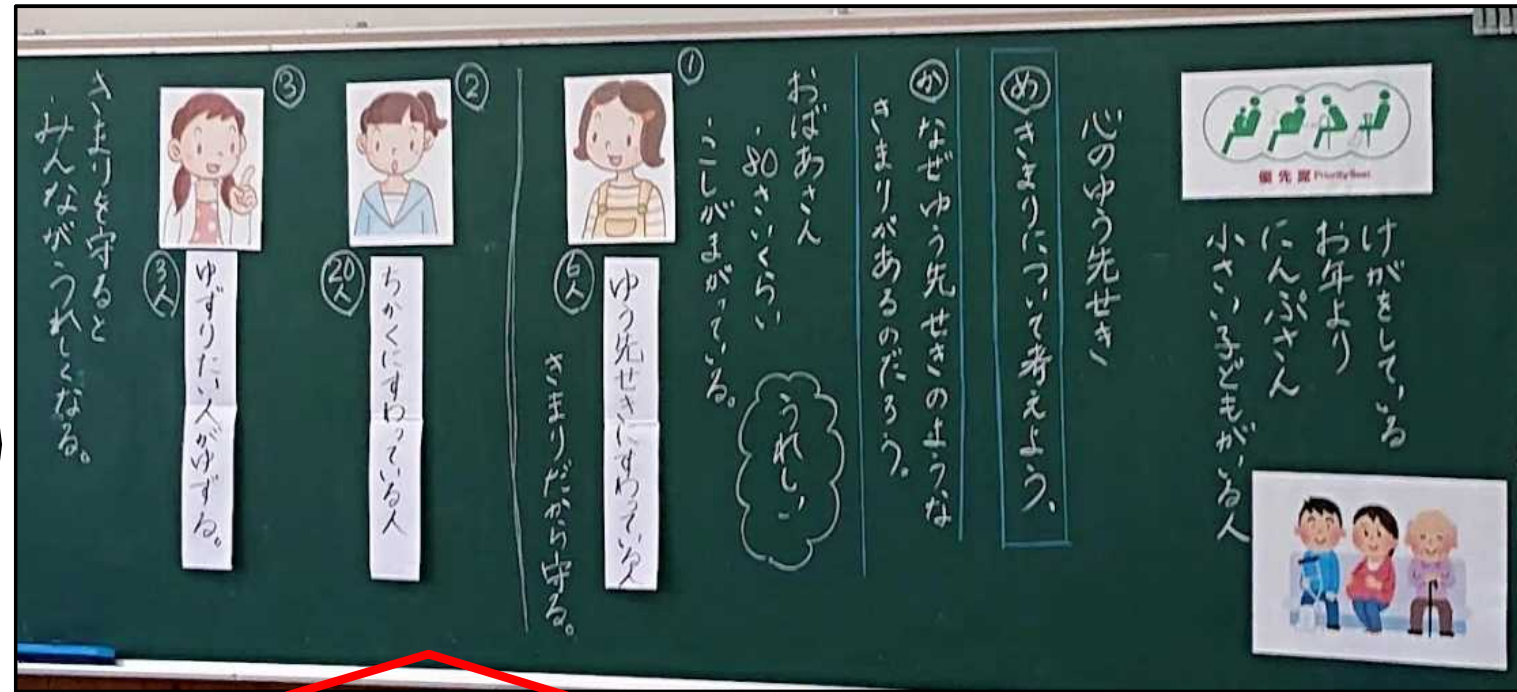 優先席 Priority Seat
けがをしている
お年より
にんぷさん
小さい子どもがいる人
心のゆう先せき
め きまりについて考えよう。
か なぜゆう先せきのような
きまりがあるのだろう。
おばあさん
・80さいくらい
・こしがまがっている。
うれしい
①
6人
ゆう先せきにすわっている人
きまりだから守る。
②
20人
ちかくにすわっている人
③
3人
ゆずりたい人がゆずる。
きまりを守ると
・みんながうれしくなる。